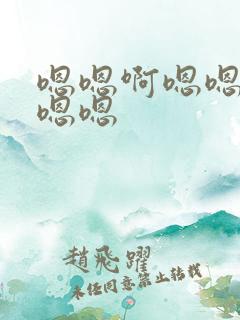 嗯嗯啊嗯嗯
嗯嗯
趙飛躍
未经同意禁止转载